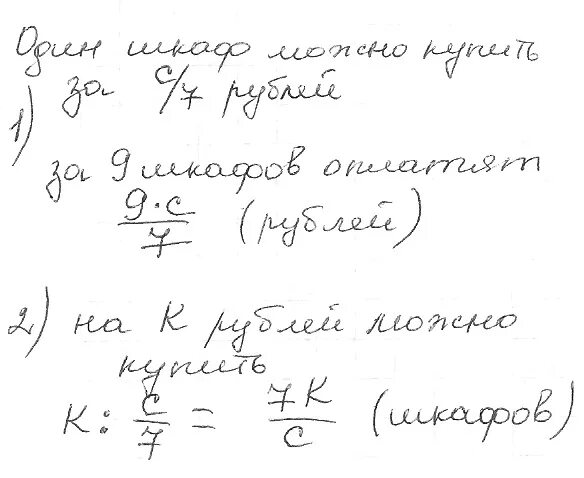 Один шкаф можно купить
за c/7 рублей
1)
за 9 шкафов оплатят
9·c/7 (рублей)
2) на K рублей можно
купить
K : c/7 = 7K/c (шкафов)